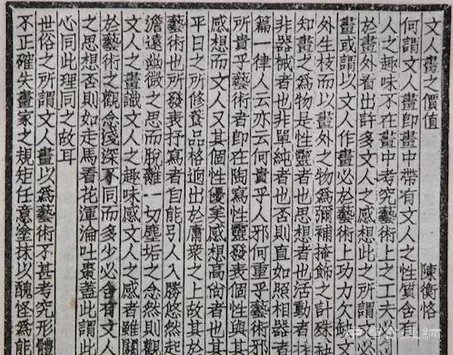 文人畫之價值　陳衡恪
何謂文人畫即畫中帶有文人之性質含
人之趣味不在畫中考究藝術上之工夫
於畫外看出許多文人之感想此之所謂
畫或謂以文人作畫必於藝術上功力欠缺
外生枝而以畫外之物為彌補掩飾之計殊
知畫之為物是性靈者也思想者也活動者
非器械者也非單純者也否則直如照相器
篇一律人云亦云何貴乎人邪何重乎藝術邪
所貴乎藝術者即在陶寫性靈發表個性與其
感想而文人又其個性優美感想高尚者也其
平日之所修養品格迥出於庸衆之上故其於
藝術也所發表抒寫者自能引人入勝悠然起
澹遠幽微之思而脫離一切塵垢之念然則觀
文人之畫識文人之趣味感文人之感者雖關
於藝術之觀念淺深不同而多少必含有文人
之思想否則如走馬看花渾淪吐棗蓋此謂此
心同此理同之故耳
世俗之所謂文人畫以為藝術不甚考究形體
不正確失畫家之規矩任意塗抹以醜怪為能